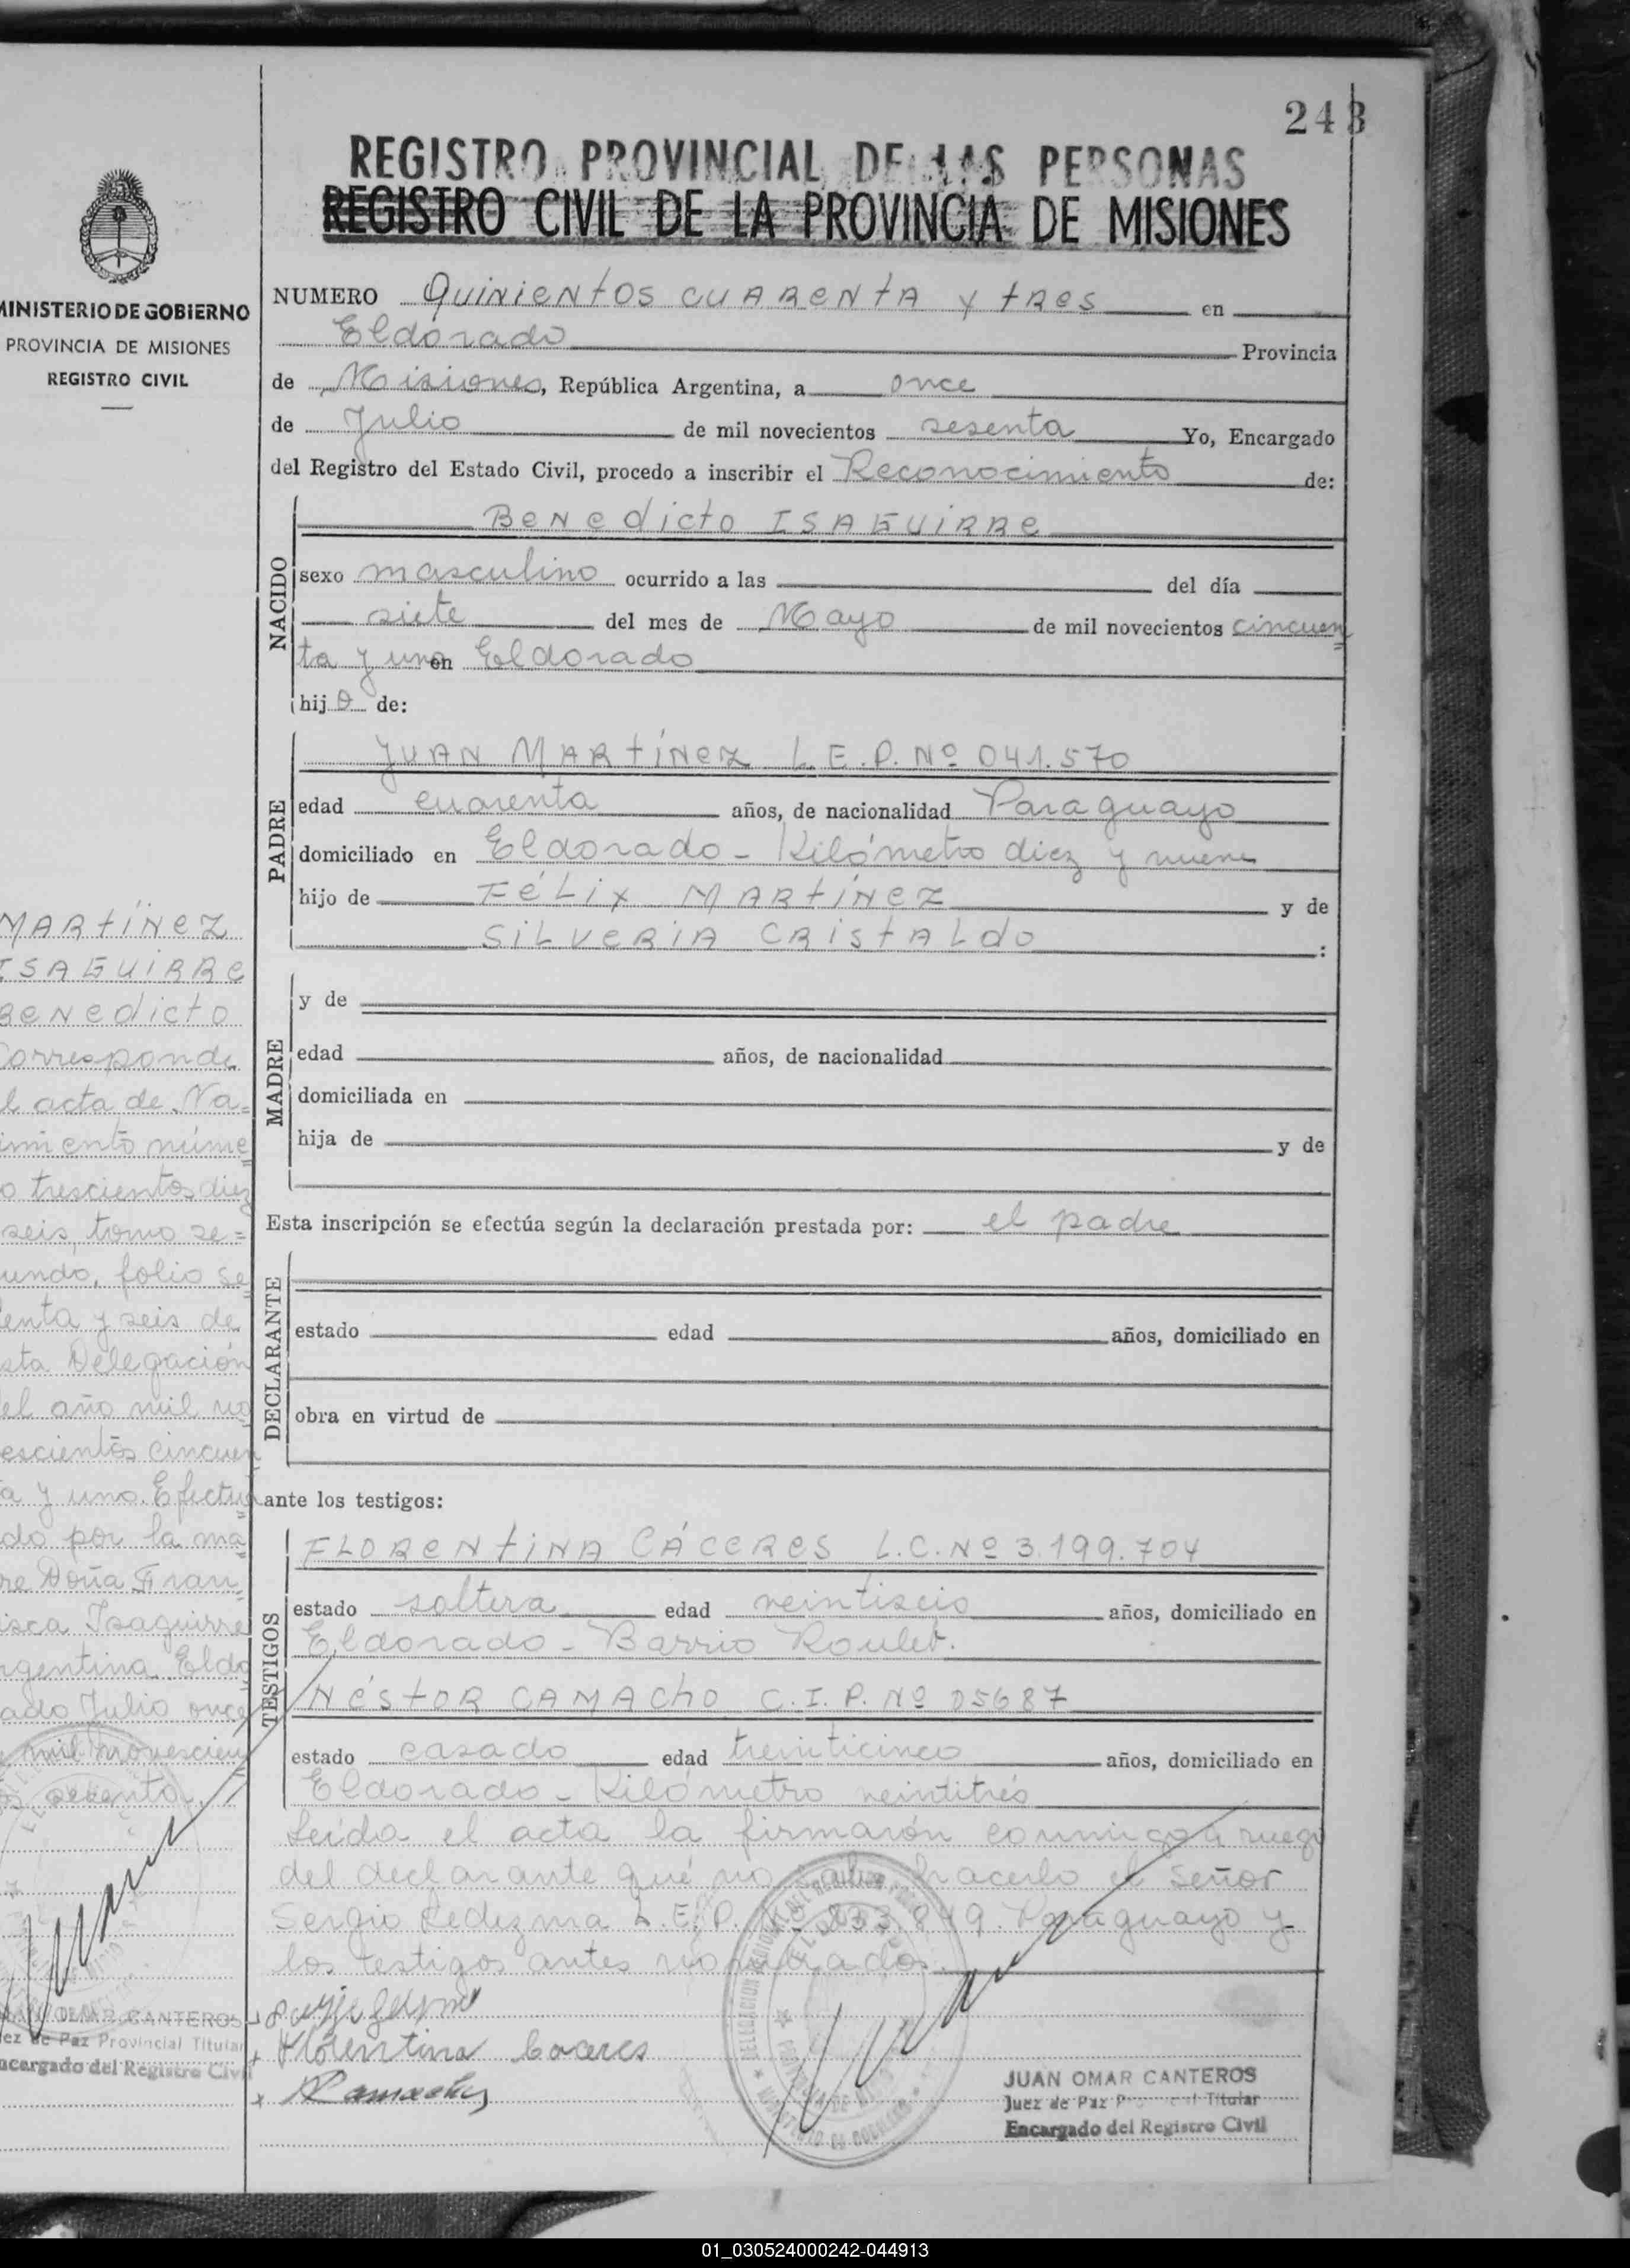 243
REGISTRO PROVINCIAL DE LAS PERSONAS
REGISTRO CIVIL DE LA PROVINCIA DE MISIONES
MINISTERIO DE GOBIERNO
PROVINCIA DE MISIONES
REGISTRO CIVIL
NUMERO Quinientos cuarenta y tres en
Eldorado Provincia
de Misiones, República Argentina, a once
de Julio de mil novecientos sesenta Yo, Encargado
del Registro del Estado Civil, procedo a inscribir el Reconocimiento de:
NACIDO
Benedicto ISAGUIRRE
sexo masculino ocurrido a las del día
siete del mes de Mayo de mil novecientos cincuen
ta y uno en Eldorado
hijo de:
PADRE
JUAN MARTÍNEZ L.E.P. Nº 041.570
edad cuarenta años, de nacionalidad Paraguayo
domiciliado en Eldorado - Kilómetro diez y nueve
hijo de FÉLIX MARTÍNEZ y de
SILVERIA CRISTALDO :
MADRE
y de
edad años, de nacionalidad
domiciliada en
hija de y de
Esta inscripción se efectúa según la declaración prestada por: el padre
DECLARANTE
estado edad años, domiciliado en
obra en virtud de
ante los testigos:
TESTIGOS
FLORENTINA CÁCERES L.C. Nº 3.199.704
estado soltera edad veintiseis años, domiciliado en
Eldorado - Barrio Roulet.
NÉSTOR CAMACHO C.I.P. Nº 05687
estado casado edad treinticinco años, domiciliado en
Eldorado - Kilómetro veintitrés
Leída el acta la firmarón conmigo a ruego
del declarante qué no sabe hacerlo el señor
Sergio Ledezma L.E.P. Paraguayo y
los testigos antes nombrados.
Florentina Caceres
Camacho
JUAN OMAR CANTEROS
Juez de Paz Provincial Titular
Encargado del Registro Civil
MARTÍNEZ
ISAGUIRRE
Benedicto
Corresponde
l acta de Na=
imiento núme
o trescientos diez
seis, tomo se=
undo, folio se
enta y seis de
sta Delegación
el año mil no
escientos cincuen
a y uno. Efectua
do por la ma
re Doña Fran
isca Isaguirre
rgentina. Eldo
ado Julio once
mil novescien
os sesenta.
OMAR CANTEROS
ez de Paz Provincial Titular
ncargado del Registro Civil
01_030524000242-044913